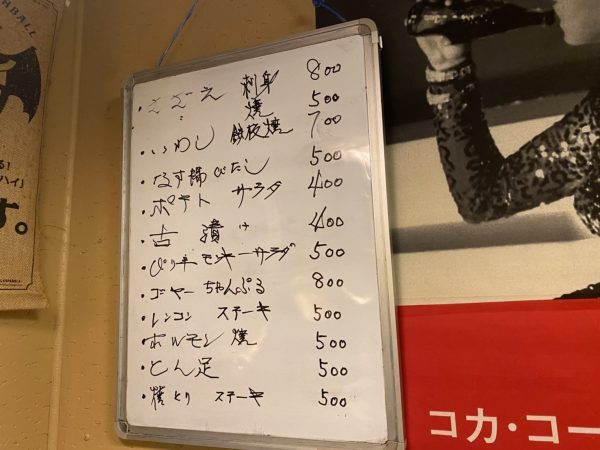 HBALL
る!
ハイ」
す。
・さざえ 刺身 800
〃 焼 500
・いわし 鉄板焼 700
・なす揚びたし 500
・ポテト サラダ 400
・古漬け 400
・ぴり辛モンキーサラダ 500
・ゴーヤーちゃんぷる 800
・レンコン ステーキ 500
・ホルモン焼 500
・とん足 500
・とり ステーキ 500
コカ・コー